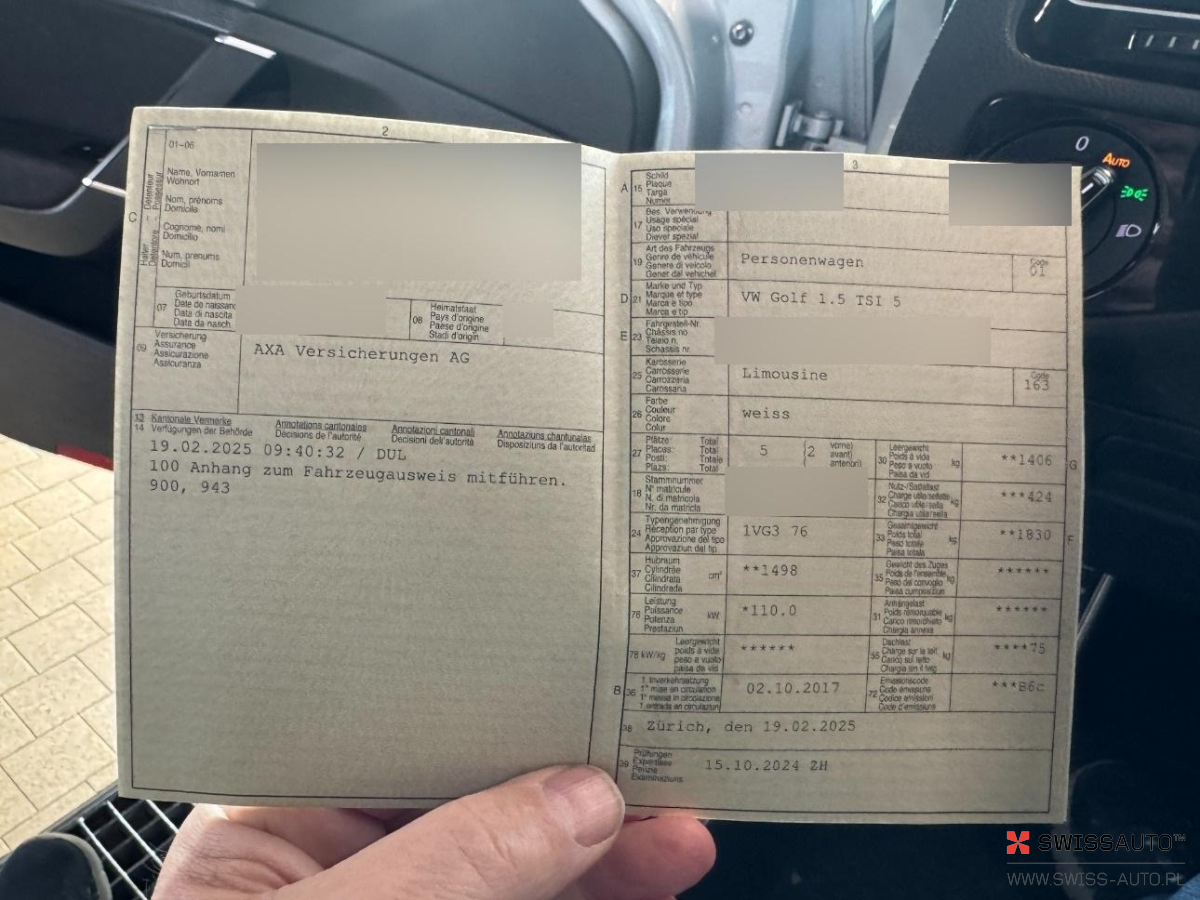 2
01-06
C
Halter – Détenteur
Detentore – Possessur
Name, Vornamen
Wohnort
Nom, prénoms
Domicile
Cognome, nomi
Domicilio
Num, prenums
Domicil
07
Geburtsdatum
Date de naissance
Data di nascita
Data da nasch.
08
Heimatstaat
Pays d'origine
Paese d'origine
Stadi d'origin
09
Versicherung
Assurance
Assicurazione
Assicuranza
AXA Versicherungen AG
13
14
Kantonale Vermerke
Verfügungen der Behörde
Annotations cantonales
Décisions de l'autorité
Annotazioni cantonali
Decisioni dell'autorità
Annotaziuns chantunalas
Disposiziuns da l'autoritad
19.02.2025 09:40:32 / DUL
100 Anhang zum Fahrzeugausweis mitführen.
900, 943
3
A 15
Schild
Plaque
Targa
Numer
17
Bes. Verwendung
Usage spécial
Uso speciale
Diever spezial
19
Art des Fahrzeugs
Genre de véhicule
Genere di veicolo
Gener dal vehichel
Personenwagen
Code
01
D 21
Marke und Typ
Marque et type
Marca e tipo
Marca e tip
VW Golf 1.5 TSI 5
E 23
Fahrgestell-Nr.
Châssis no
Telaio n.
Schassis nr.
25
Karosserie
Carrosserie
Carrozzeria
Carossaria
Limousine
Code
163
26
Farbe
Couleur
Colore
Colur
weiss
27
Plätze: Total
Places: Total
Posti: Totale
Plazs: Total
5
(2
vorne)
avant)
anteriori)
30
Leergewicht
Poids à vide
Peso a vuoto
Paisa da vid
kg
**1406
G
18
Stammnummer
N° matricule
N. di matricola
Nr. da matricla
32
Nutz-/Sattellast
Charge utile/sellette
Carico utile/sella
Chargia utila/sella
kg
***424
24
Typengenehmigung
Réception par type
Approvazione del tipo
Approvaziun dal tip
1VG3 76
33
Gesamtgewicht
Poids total
Peso totale
Paisa totala
kg
**1830
F
37
Hubraum
Cylindrée
Cilindrata
Cilindrada
cm³
**1498
35
Gewicht des Zuges
Poids de l'ensemble
Peso del convoglio
Paisa cumposiziun
kg
******
76
Leistung
Puissance
Potenza
Prestaziun
kW
*110.0
31
Anhängelast
Poids remorquable
Carico rimorchiato
Chargia annexa
kg
******
78 kW/kg
Leergewicht
poids à vide
peso a vuoto
paisa da vid
******
55
Dachlast
Charge sur le toit
Carico sul tetto
Chargia sin il tetg
kg
****75
B 36
1. Inverkehrsetzung
1re mise en circulation
1a messa in circolazione
1. entrada en circulaziun
02.10.2017
72
Emissionscode
Code émissions
Codice emissioni
Code d'emissiuns
***B6c
38
Zürich, den 19.02.2025
39
Prüfungen
Expertises
Perizie
Examinaziuns
15.10.2024 ZH
0
AUTO
SWISSAUTO™
WWW.SWISS-AUTO.PL